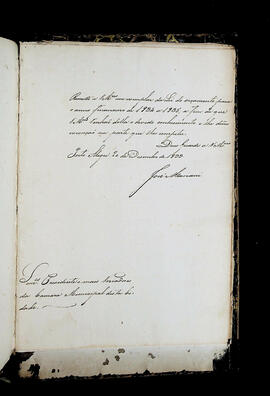 Remetto a V.Mces um exemplar da Lei do orçamento para
o anno financeiro de 1834 a 1835, a fim de que
V.Mces tenhão della o devido conhecimento e lhe dêem
execução na parte que lhes compete.
Deos Guarde a V.Mces
Porto Alegre 20 de Dezembro de 1833.
José Mariani
Snres Presidente e mais Vereadores
da Camara Municipal desta Ci-
dade.